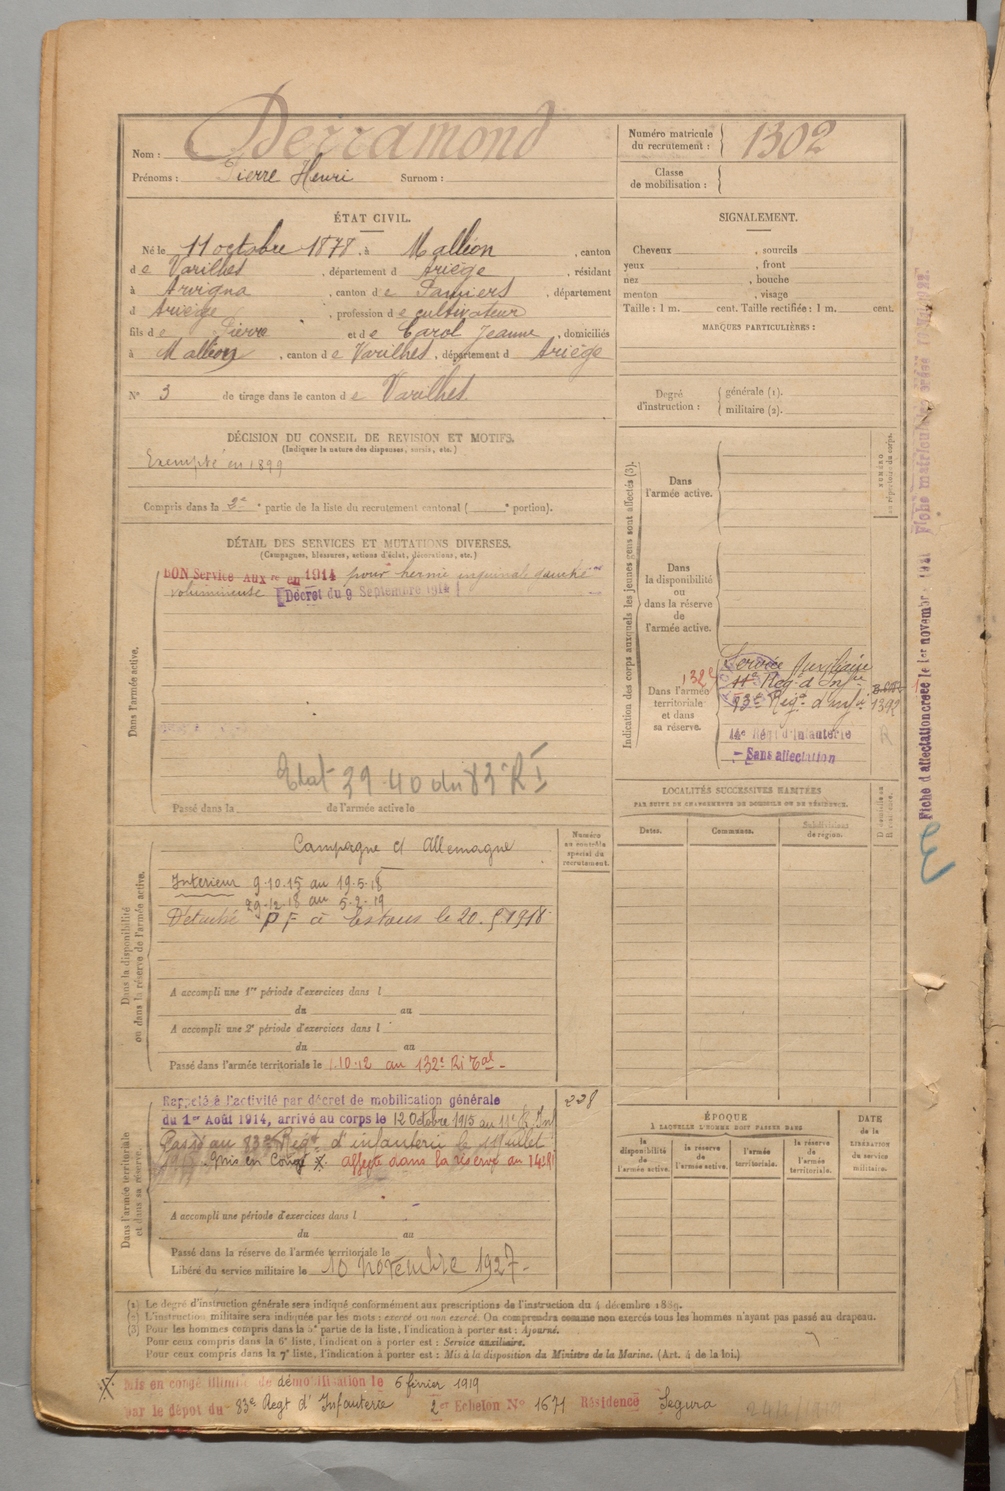 Nom : Derramond
Prénoms : Pierre Henri Surnom :
Numéro matricule du recrutement : 1302
Classe de mobilisation :
ÉTAT CIVIL.
Né le 11 octobre 1878, à Malléon, canton
de Varilhes, département d Ariège, résidant
à Arvigna, canton de Pamiers, département
d Ariège, profession de cultivateur
fils de Pierre et de Carol Jeanne, domiciliés
à Malléon, canton de Varilhes, département d Ariège
N° 3 de tirage dans le canton de Varilhes
SIGNALEMENT.
Cheveux , sourcils
yeux , front
nez , bouche
menton , visage
Taille : 1 m. cent. Taille rectifiée : 1 m. cent.
MARQUES PARTICULIÈRES :
Degré d'instruction : générale (1). militaire (2).
DÉCISION DU CONSEIL DE REVISION ET MOTIFS.
(Indiquer la nature des dispenses, sursis, etc.)
Exempté en 1899
Compris dans la 2e partie de la liste du recrutement cantonal ( e portion).
DÉTAIL DES SERVICES ET MUTATIONS DIVERSES.
(Campagnes, blessures, actions d'éclat, décorations, etc.)
Dans l'armée active.
BON Service Auxre en 1914 pour hernie inguinale gauche
volumineuse Décret du 9 Septembre 1914
Etat 39-40 du 83e R I
Passé dans la de l'armée active le
Dans la disponibilité ou dans la réserve de l'armée active.
Numéro au contrôle spécial du recrutement.
Campagne c/ Allemagne
Intérieur 9.10.15 au 19.5.18
29-12-18 au 5-2-19
Détaché P F à Estaus le 20.5.1918
A accompli une 1re période d'exercices dans l
du au
A accompli une 2e période d'exercices dans l
du au
Passé dans l'armée territoriale le 1.10.12 au 132e Ri Tal
Dans l'armée territoriale et dans sa réserve.
Rappelé à l'activité par décret de mobilisation générale 228
du 1er Août 1914, arrivé au corps le 12 Octobre 1915 au 11e R. Inf
Passé au 83e Regt d'infanterie le 1 Juillet
Mis en Congé X. affecté dans la réserve au 14e RI
A accompli une période d'exercices dans l
du au
Passé dans la réserve de l'armée territoriale le
Libéré du service militaire le 10 novembre 1927.
Indication des corps auxquels les jeunes gens sont affectés (3).
NUMÉRO au répertoire du corps.
Dans l'armée active.
Dans la disponibilité ou dans la réserve de l'armée active.
Dans l'armée territoriale et dans sa réserve.
132e
Service Auxiliaire
11e Reg. d'Infie
83e Regt d'Infie 1392
14e Régt d'Infanterie R
- Sans affectation
LOCALITÉS SUCCESSIVES HABITÉES
PAR SUITE DE CHANGEMENTS DE DOMICILE OU DE RÉSIDENCE.
Dates. Communes. Subdivisions de région. D domicile ou R résidence.
ÉPOQUE
À LAQUELLE L'HOMME DOIT PASSER DANS
la disponibilité de l'armée active. la réserve de l'armée active. l'armée territoriale. la réserve de l'armée territoriale.
DATE de la LIBÉRATION du service militaire.
(1) Le degré d'instruction générale sera indiqué conformément aux prescriptions de l'instruction du 4 décembre 1889.
(2) L'instruction militaire sera indiquée par les mots : exercé ou non exercé. On comprendra comme non exercés tous les hommes n'ayant pas passé au drapeau.
(3) Pour les hommes compris dans la 5e partie de la liste, l'indication à porter est : Ajourné.
Pour ceux compris dans la 6e liste, l'indication à porter est : Service auxiliaire.
Pour ceux compris dans la 7e liste, l'indication à porter est : Mis à la disposition du Ministre de la Marine. (Art. 4 de la loi.)
X Mis en congé illimité de démobilisation le 6 février 1919
par le dépot du 83e Regt d'Infanterie 2e Echelon N° 1671 Résidence Segura
Fiche d'affectation créée le 1er novembre 1921 Fiche matriculaire créée